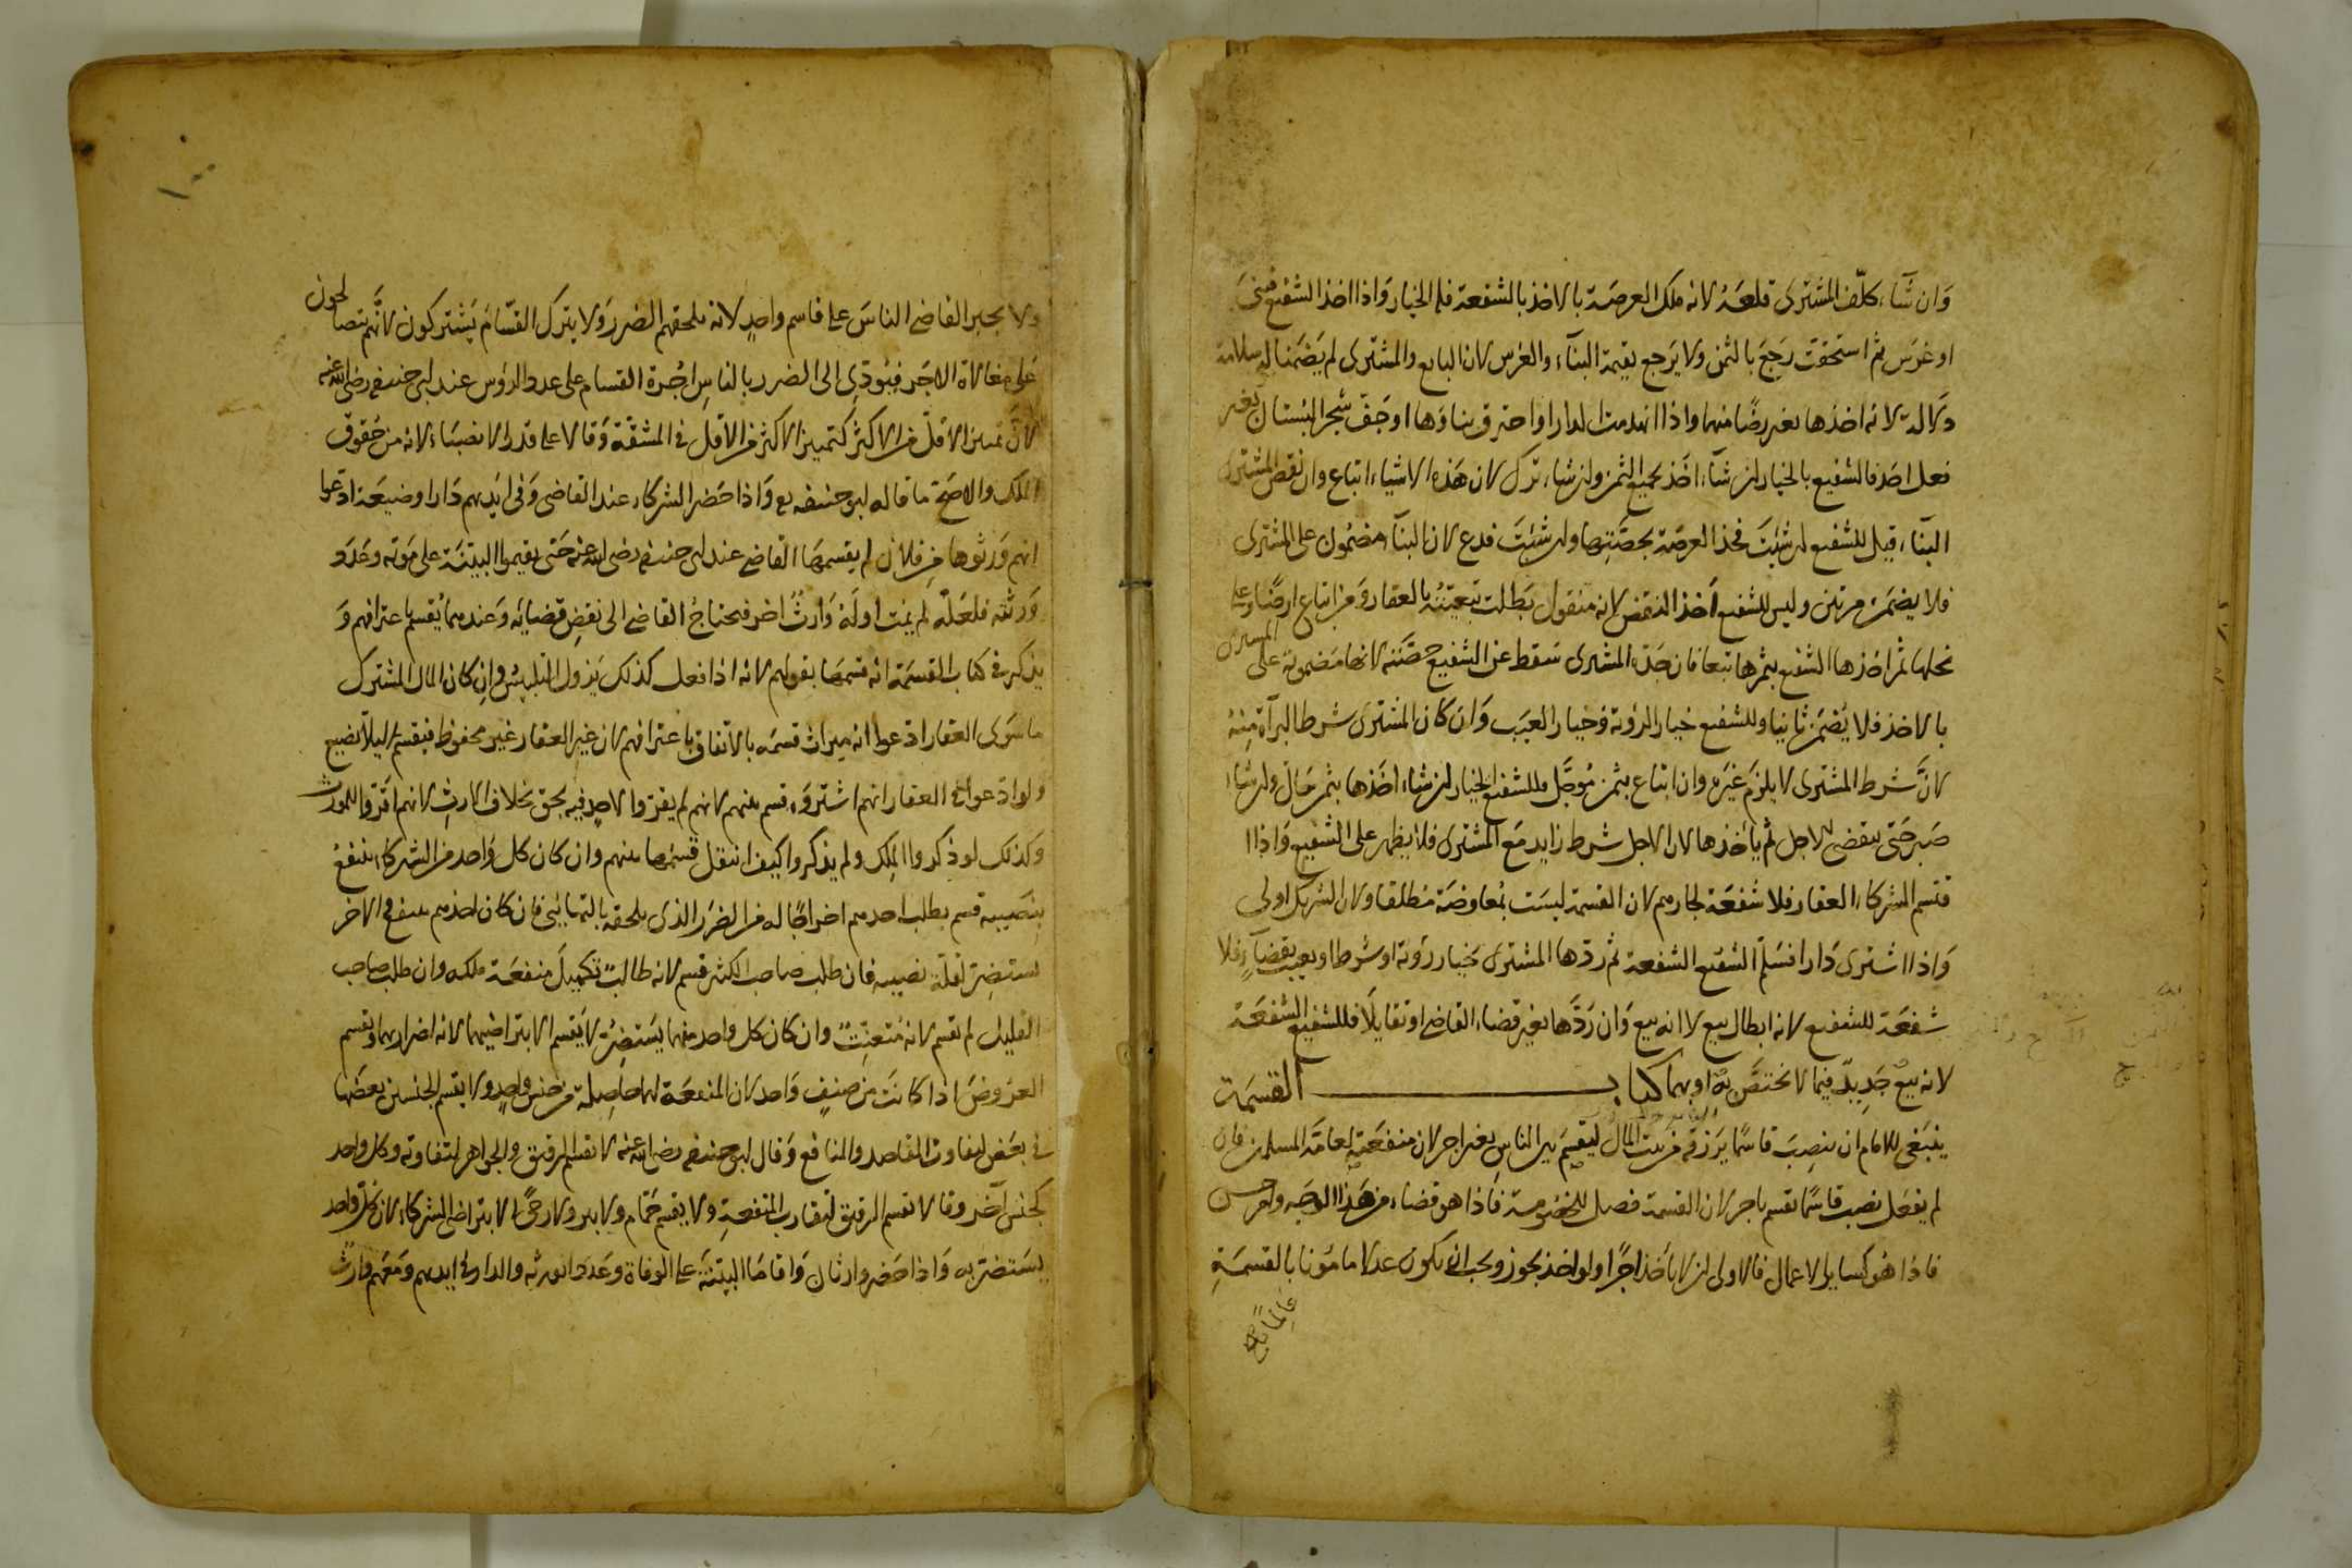 وان شآء كلّف المشترى قلعَهُ لانه ملك العرصة بالاخذ بالشفعة فله الخيار واذا اخذ الشفيع فبنى
او غرَس ثم استحقت رَجَعَ بالثمن ولا يَرجع بقيمة البنآء والغرس لان البايع والمشترى لم يَضمنا له سلامة
ذلك له لانه اخذها بغير رضًا منهما واذا انهدمت الدار او احترق بناؤها او جَفّ شجر البستان بغير
فعل احَدٍ فالشفيع بالخيار ان شآء اخذ بجميع الثمن وان شاء ترك لان هَذه الاشياء اتباع وان نقض المشترى
البنآء قيل للشفيع ان شئتَ فخذ العرصَة بحصَّتِها وان شئتَ فدع لان البنآء مضمون على المشترى
فلا يضمَن مرتين وليس للشفيع اَخذ النقض لانه منقول بَطلت تبعيّتهُ بالعقار وَمَن ابتاع ارضًا وعلى
نخلها ثمر اخذها الشفيع بثمرها تبعا فان جَدّه المشترى سَقط عن الشفيع حصَّته لانها مَضمونة على المشترى
بالاخذ فلا يُضمَن ثانيا وللشفيع خيار الرؤية وَخيار العيَب وَان كان المشترى شرط البرآة مِنهُ
لانَّ شرط المشترى لا يلزَم غيَره وان ابتاع بثمن مُوجَّل فللشفيع الخيار ان شاء اخَذها بثمن حَالّ وان شاء
صَبر حَتى ينقضى الاجل ثم يأخذها لان الاجل شرط زايد مَع المشترى فلا يظهر على الشفيع وَاذا ا
قتسم الشركاء العقار فلا شفعَة لجارهم لان القسمة ليسَت بمُعاوضة مُطلقا ولان الشريك اولى
وَاذا اشترى دَارا فسَلم الشفيع الشفعة ثم ردّها المشترى بخيار رؤية او شرط او بعيب بقضآءٍ فلا
شفعَة للشفيع لانه ابطال بيع لا انه بيع وَان رَدَّها بغير قضاء القاضى او تقايلَا فللشفيع الشفعَة
لانه بيعٌ جَدِيدٌ فيما لا يختصَّ به او بهما كتاب القسمَة
ينبَغى للامام ان ينصِبَ قاسمًا يَرزقه من بيت المال ليقسِمَ بين الناس بغير اجر لان منفعَته لعامّة المسلمين فان
لم يفعَل نصب قاسمًا يقسم باجر لان القسمة فصل للخصُومة فاذا هو قضاء من هَذا الوجه ولو
فاذا هُو كساير الاعمال فالاولى ان لا ياخذ اجرًا ولو اخذ يجوز ويجب ان يكون عدلا مامُونا بالقسمَةِ
عالمًا
ولا يجبر القاضى الناسَ على قاسم واحدٍ لانه يلحقهم الضرر وَلا يترك القسّام يَشتركون لانّهم يتصالحون
على مغالاة الاجَر فيُؤدِى الى الضرر بالناسِ اجُرة القسام على عدد الرؤس عند ابى حنيفه رضى الله عنه
لانّ تميزَ الاقلّ من الاكثر كتمييز الاكثر من الاقل فى المشقّة وَقالا على قدر الانصبَاء لانه من حُقوق
الملك والاصَحّ ما قاله ابو حنيفه رح وَاذا حَضر الشركاء عند القاضى وَفى ايَديهم دَارا او ضيعَة ادعوا
انهم وَرثوها من فلانٍ لم يقسمهَا القاضى عند ابى حنيفه رضى الله عنه حَتى يقيموا البيّنَة على مَوته وعَدَد
وَرثته فلعَلّه لم يَمُت او لَه وَارثٌ اخر فيحتاجُ القاضى الى نقضِ قضيائِه وَعندهما يُقسم باعترافهم وَ
يذكر فى كتاب القسمَة انه قسمهَا بقولهم لانه اذا فعل كذلك يَزول التلبيسُ وانِ كان المال المشترك
ما سَوى العقار ادعوا انه ميراث قسمَه بالاتفاق باعترافهم لان غيرَ العقار غير محفوظ فيقسم ليلا يَضيع
ولو ادعوا فى العقار انهم اشترَوه قسم بينهم لانهم لم يقروا لاحدٍ فيه بحق بخلاف الارث لانهم اقروا للمورث
وَكذلك لو ذكروا الملِك ولم يذكروا كيف انتقل قسَمها بينهم وان كان كل واحد من الشركاء ينتفع
بِنَصيبه قسم بطلب احدهم اخراجًا له من الضرَر الذى يلحقه بالتهايئ فان كان احدهم ينتفع والاخر
يستضِرّ لقلة نصيبه فان طلب صاحب الكثير قسم لانه طالبٌ تكميل مَنفعَة ملكه وان طلب صاحب
القليل لم يقسم لانه مُتعنِّتٌ وان كان كل واحد منهما يَستضِرّ لا يَقسم الا بتراضيهما لانه اضرار بهما ويقسم
العرُوضَ اذا كانت من صِنفٍ وَاحد لان المنفعَة لها حاصِلة من جنس واحدٍ ولا يقسم الجنسين بعضَها
فى بعَض لتفاوت المقاصد والمنافع وَقال ابو حنيفه رضى الله عنه لا تقسم الرقيق والجواهر لتفاوته وكل واحد
كجنسٍ آخر وقالا تقسم الرقيق لتقارب المنفعةِ ولا يقسم حَمّام ولا بير ولا رحًى الا بتراضى الشركاء لان كلّ واحد
يسَتضرّ به وَاذا حَضر وارثان وَاقامَا البيّنة على الوفاة وعَدَد الورثه والدار فى ايديهم وَمَعَهم وارثٌ